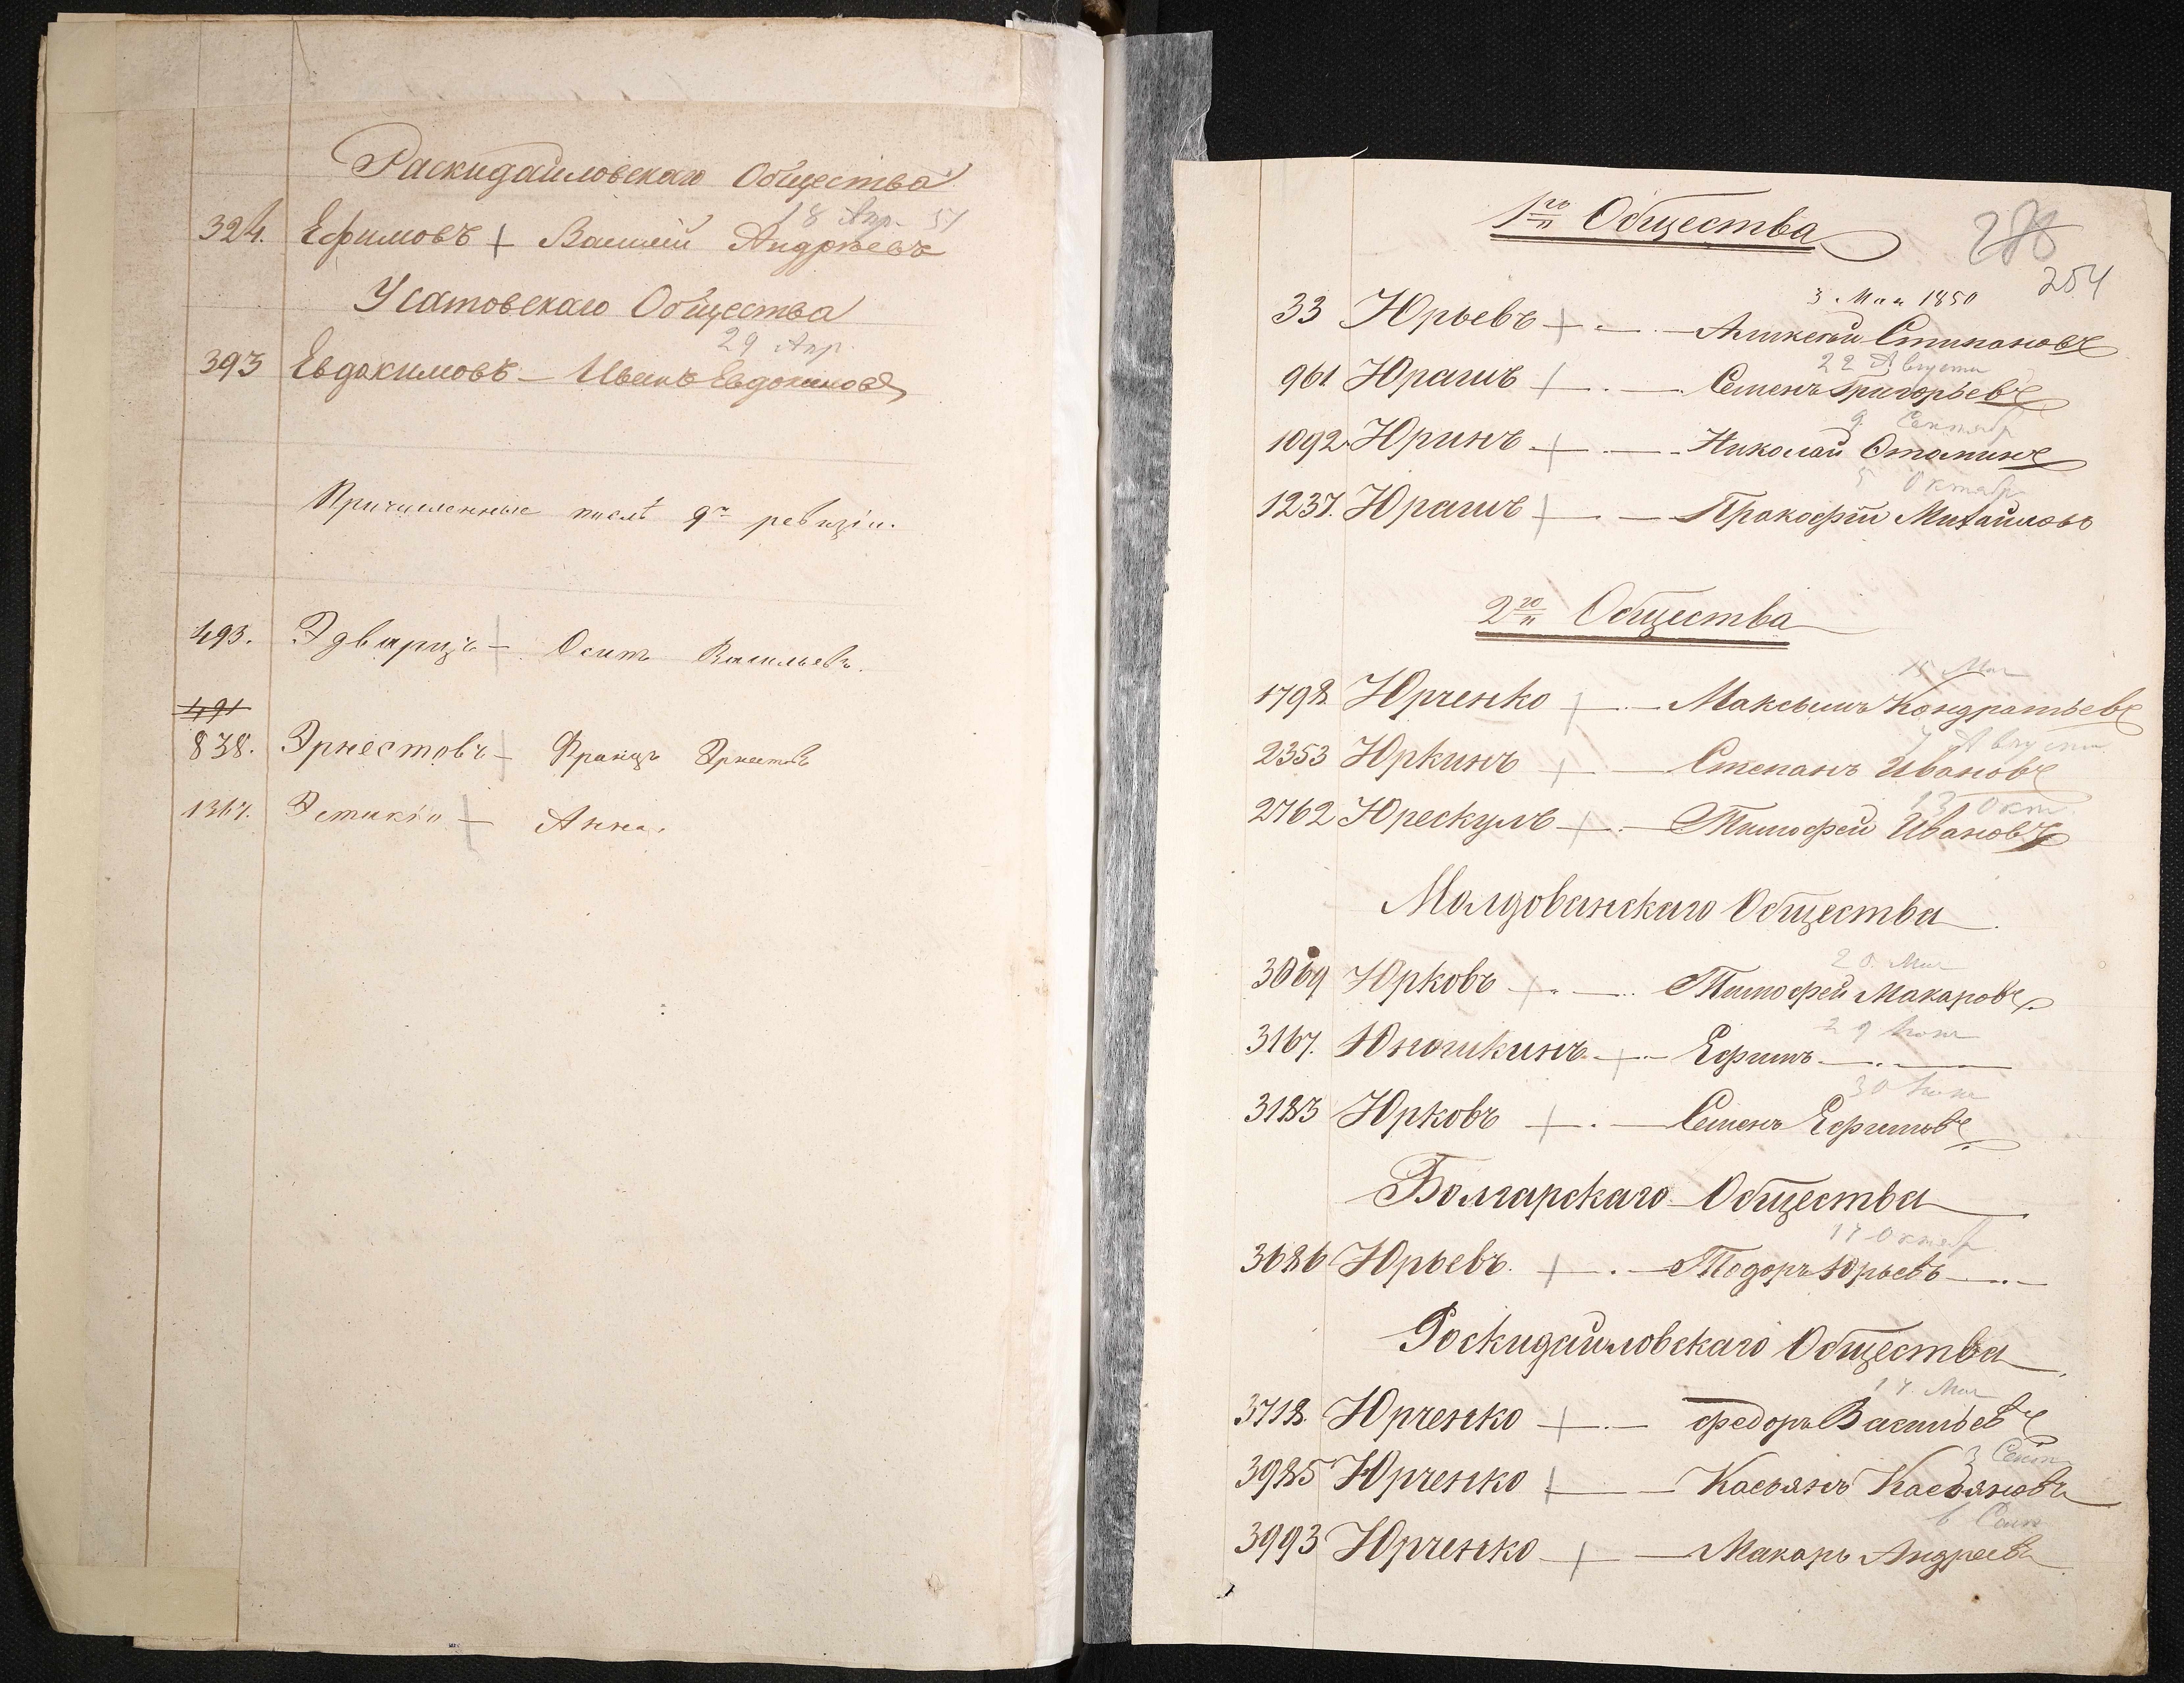 Раскидайловскаго Общества
18 Апр. 51
324. Ефимовъ + Василій Андреевъ
Усатовскаго Общества
29 Апр.
393 Евдокимовъ — Иванъ Евдокимовъ
Причисленные послѣ 9й ревизіи.
493. Эдварцъ — Осипъ Васильевъ.
491
838. Эрнестовъ — Францъ Эрнестовъ
1367. — Анна.
1го Общества
254
3 Мая 1850
33 Юрьевъ + — Алексѣй Степановъ
22 Августа
961 Юрашъ + — Семенъ Григорьевъ
9 Сентяб
1092 Юринъ + — Николай
5 Октября
1237. Юрашъ + — Прокофій Михайловъ
2го Общества
15 Мая
1798 Юрченко + — Максимъ Кондратьевъ
7 Августа
2353 Юркинъ + — Степанъ Ивановъ
13 Окт.
2762 Юрескулъ + — Тимофей Ивановъ
Молдованскаго Общества
20 Мая
3069 Юрковъ + — Тимофей Макаровъ
29 Іюня
3167. Юношкинъ + — Ефимъ —
30 Іюня
3183 Юрковъ + — Семенъ Ефимовъ
Болгарскаго Общества
17 Октяб
3686 Юрьевъ + — Тодоръ Юрьевъ —
Роскидайловскаго Общества
17 Мая
3718. Юрченко + — Федоръ Васильевъ
3 Сент
3985 Юрченко + — Касьянъ Касьяновъ
6 Сент
3993 Юрченко + — Макаръ Андреевъ